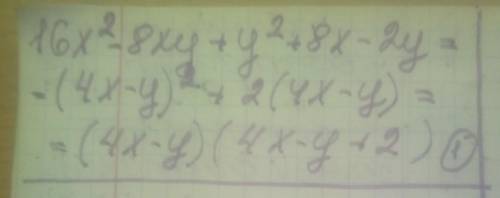 16x²-8xy+y²+8x-2y=
-(4x-y)²+2(4x-y)=
=(4x-y)(4x-y+2) ①